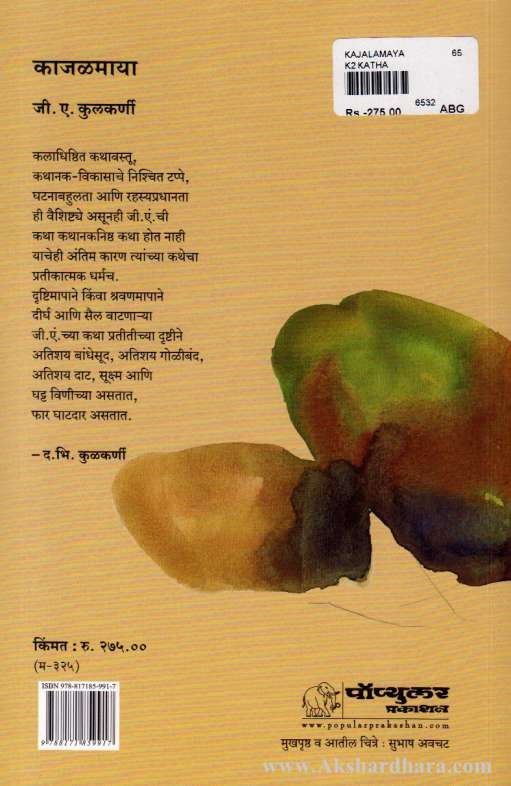 काजळमाया
जी. ए. कुलकर्णी
KAJALAMAYA 65
K2 KATHA
Rs.-275.00 6532 ABG
कलाधिष्ठित कथावस्तू,
कथानक-विकासाचे निश्चित टप्पे,
घटनाबहुलता आणि रहस्यप्रधानता
ही वैशिष्ट्ये असूनही जी.एं.ची
कथा कथानकनिष्ठ कथा होत नाही
याचेही अंतिम कारण त्यांच्या कथेचा
प्रतीकात्मक धर्मच.
दृष्टिमापाने किंवा श्रवणमापाने
दीर्घ आणि सैल वाटणाऱ्या
जी.एं.च्या कथा प्रतीतीच्या दृष्टीने
अतिशय बांधेसूद, अतिशय गोळीबंद,
अतिशय दाट, सूक्ष्म आणि
घट्ट विणीच्या असतात,
फार घाटदार असतात.
– द. भि. कुळकर्णी
किंमत : रु. २७५.००
(म-३२५)
ISBN 978-817185-991-7
9 788171 859917
पॉप्युलर
प्रकाशन
www.popularprakashan.com
मुखपृष्ठ व आतील चित्रे : सुभाष अवचट
www.Akshardhara.com